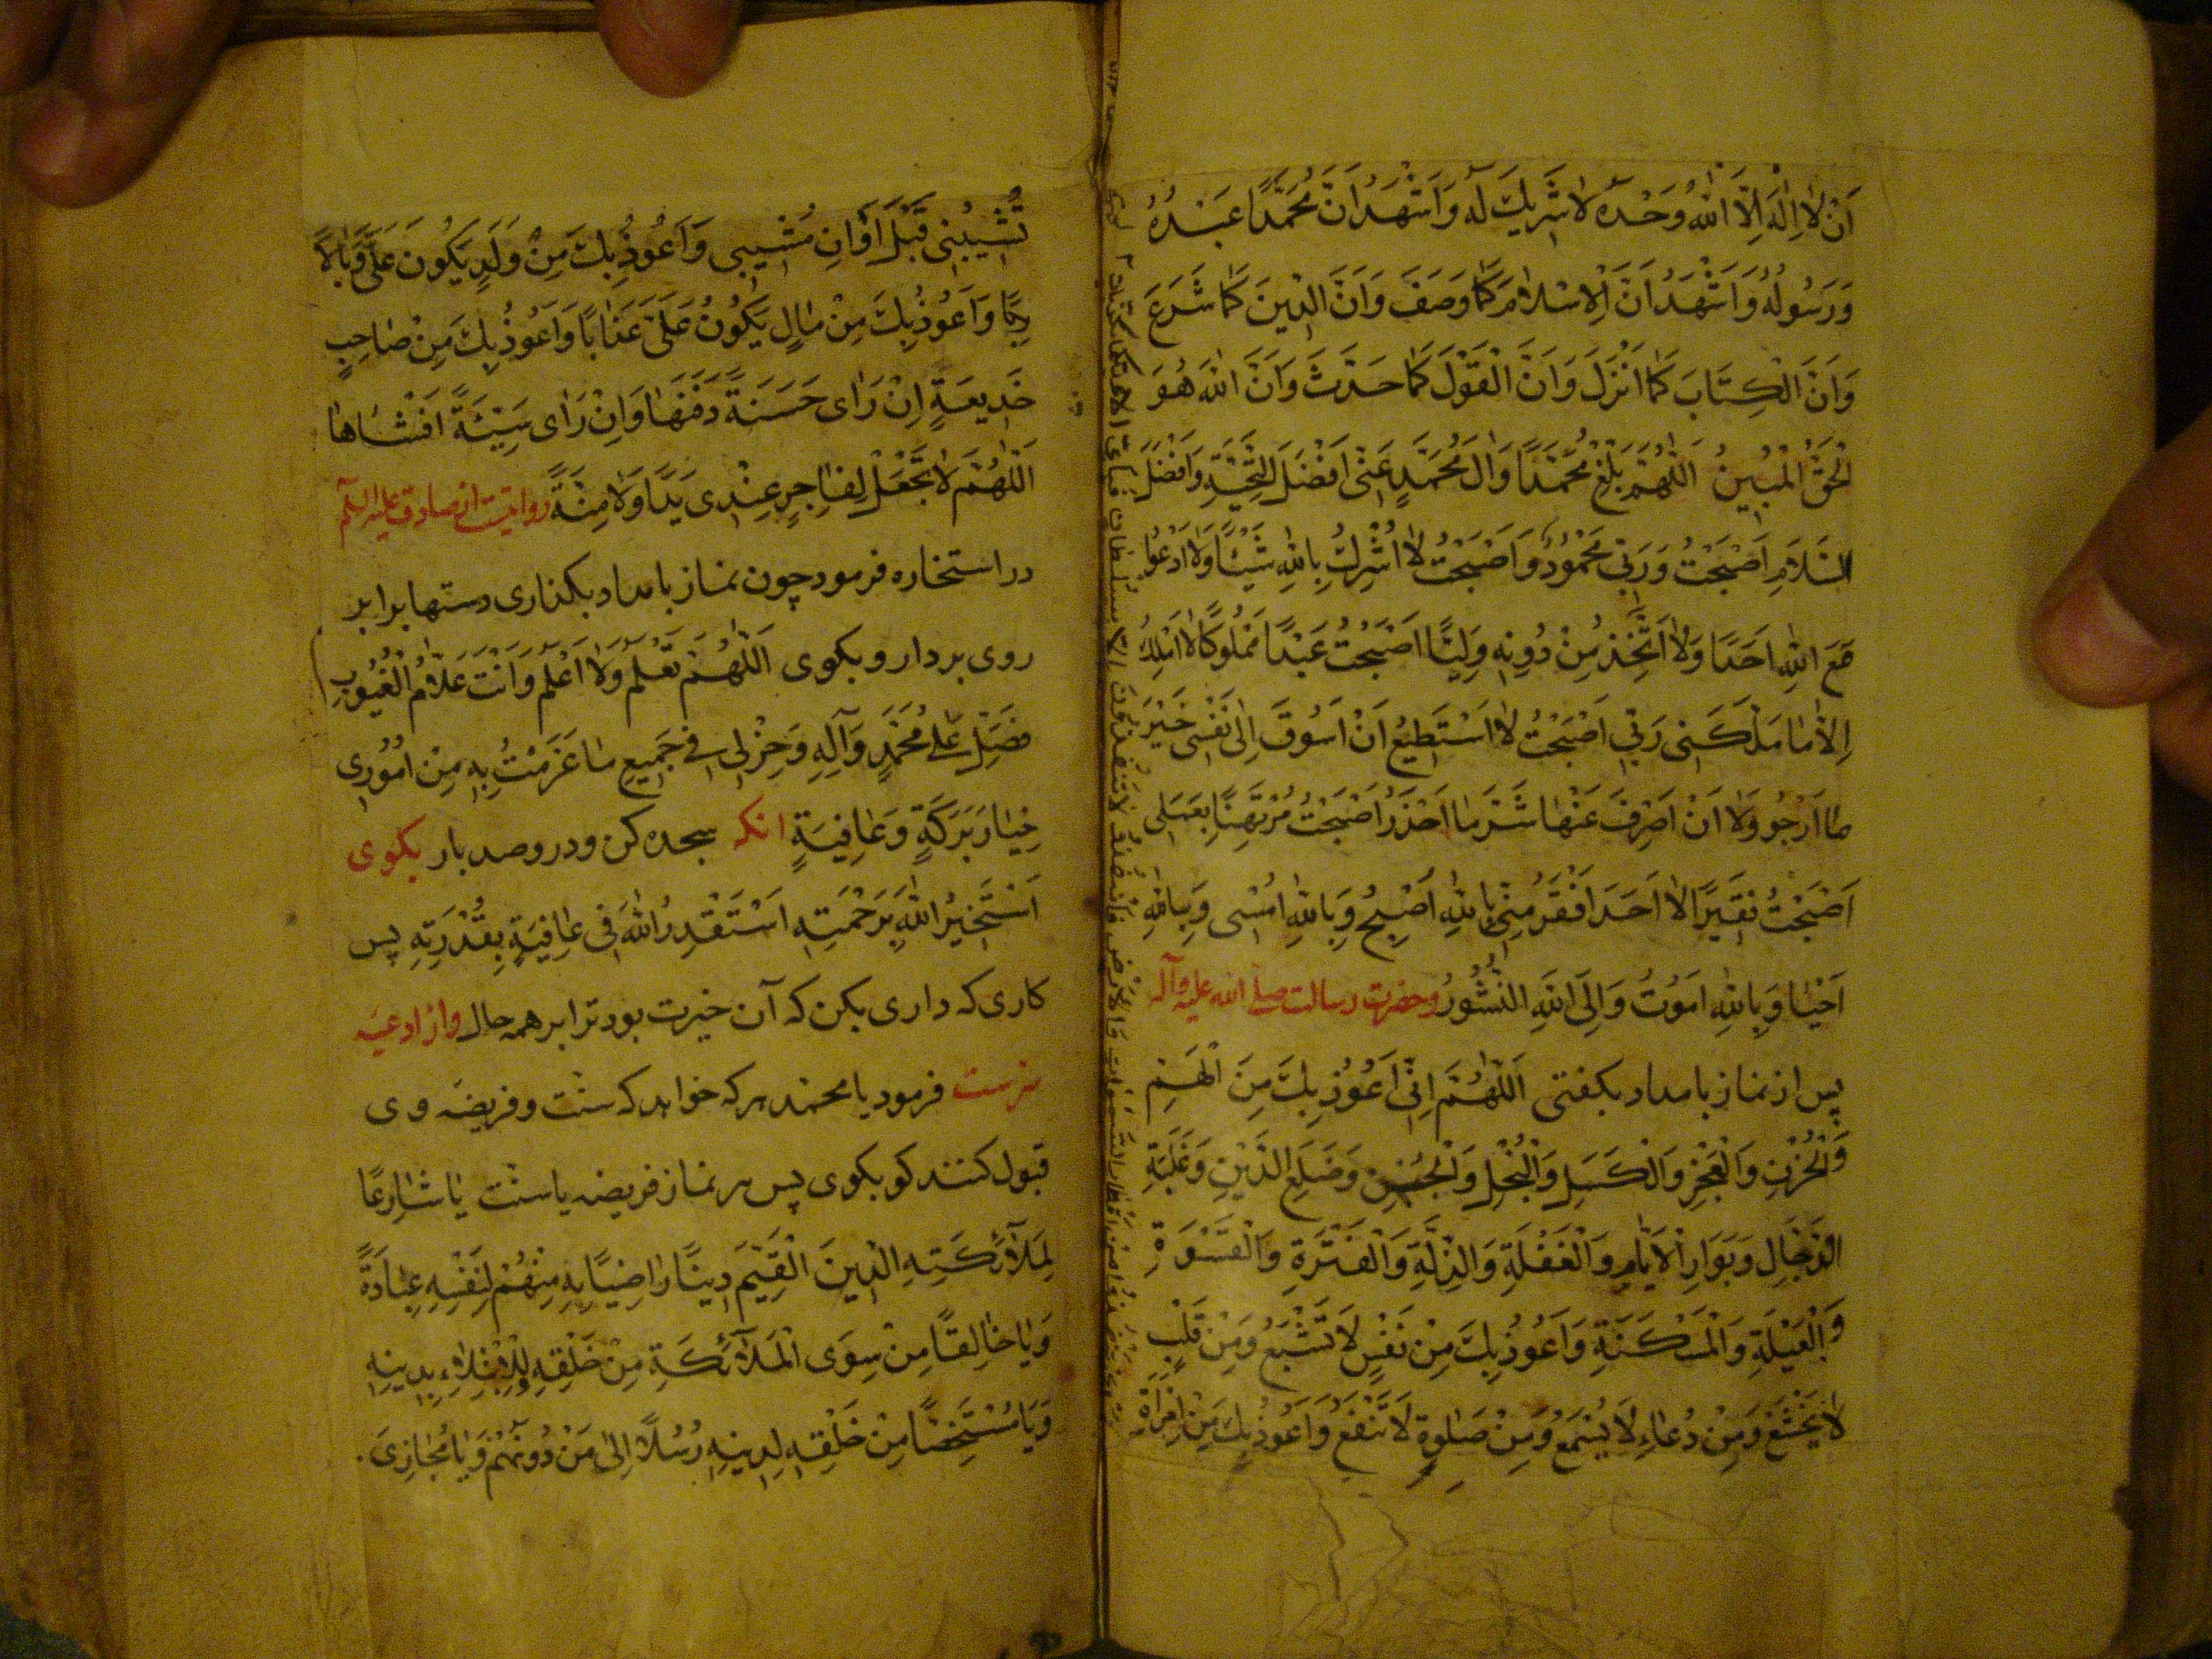 اَنْ لٰا اِلٰهَ اِلَّا اللّٰهُ وَحْدَهُ لٰا شَرِيكَ لَهُ وَاَشْهَدُ اَنَّ مُحَمَّدًا عَبْدُهُ
وَرَسُولُهُ وَاَشْهَدُ اَنَّ الْاِسْلٰامَ كَمٰا وَصَفَ وَاَنَّ الدِّينَ كَمٰا شَرَعَ
وَاَنَّ الْكِتٰابَ كَمٰا اَنْزَلَ وَاَنَّ الْقَوْلَ كَمٰا حَدَّثَ وَاَنَّ اللّٰهَ هُوَ
الْحَقُّ الْمُبِينُ اَللّٰهُمَّ بَلِّغْ مُحَمَّدًا وَاٰلَ مُحَمَّدٍ عَنّٖى اَفْضَلَ التَّحِيَّةِ وَاَفْضَلَ
السَّلَامِ اَصْبَحْتُ وَرَبّٖى مَحْمُودٌ وَاَصْبَحْتُ لٰا اُشْرِكُ بِاللّٰهِ شَيْئًا وَلٰا اَدْعُوا
مَعَ اللّٰهِ اَحَدًا وَلٰا اَتَّخِذُ مِنْ دُونِهٖ وَلِيًّا اَصْبَحْتُ عَبْدًا مَمْلُوكًا لٰا اَمْلِكُ
اِلّٰا مٰا مَلَّكَنٖى رَبّٖى اَصْبَحْتُ لٰا اَسْتَطٖيعُ اَنْ اَسُوقَ اِلٰى نَفْسٖى خَيْرَ
مٰا اَرْجُو وَلٰا اَنْ اَصْرِفَ عَنْهٰا شَرَّ مٰا اَحْذَرُ اَصْبَحْتُ مُرْتَهِنًا بِعَمَلٖى
اَصْبَحْتُ فَقٖيرًا لٰا اَحَدَ اَفْقَرُ مِنّٖى بِاللّٰهِ اُصْبِحُ وَبِاللّٰهِ اُمْسٖى وَبِاللّٰهِ
اَحْيٰا وَبِاللّٰهِ اَمُوتُ وَاِلَى اللّٰهِ النُّشُورُ وحضرت رسالت صلى الله عليه وآله
پس از نماز بامداد بكفتى اَللّٰهُمَّ اِنّٖى اَعُوذُ بِكَ مِنَ الْهَمِّ
وَالْحُزْنِ وَالْعَجْزِ وَالْكَسَلِ وَالْبُخْلِ وَالْجُبْنِ وَضَلَعِ الدَّيْنِ وَغَلَبَةِ
الرِّجٰالِ وَبَوَارِ الْاَيّٰامِ وَالْغَفْلَةِ وَالذِّلَّةِ وَالْفَتْرَةِ وَالْقَسْوَةِ
وَالْعَيْلَةِ وَالْمَسْكَنَةِ وَاَعُوذُ بِكَ مِنْ نَفْسٍ لَا تَشْبَعُ وَمِنْ قَلْبٍ
لٰا يَخْشَعُ وَمِنْ دُعٰاءٍ لَا يُسْمَعُ وَمِنْ صَلٰوةٍ لَا تَنْفَعُ وَاَعُوذُ بِكَ مِنْ اِمْرَاَةٍ
تُشَيِّبُنٖى قَبْلَ اَوَانِ مَشٖيبٖى وَاَعُوذُ بِكَ مِنْ وَلَدٍ يَكُونُ عَلَىَّ
رَبًّا وَاَعُوذُ بِكَ مِنْ مٰالٍ يَكُونُ عَلَىَّ عَذٰابًا وَاَعُوذُ بِكَ مِنْ صٰاحِبِ
خَدٖيعَةٍ اِنْ رَاٰى حَسَنَةً دَفَنَهٰا وَاِنْ رَاٰى سَيِّئَةً اَفْشٰاهٰا
اَللّٰهُمَّ لٰا تَجْعَلْ لِفٰاجِرٍ عِنْدٖى يَدًا وَلٰا مِنَّةً روايتست از صادق عليه السلم
در استخاره فرمود چون نماز بامداد بكذارى دستها برابر
روى بردار و بكوى اَللّٰهُمَّ تَعْلَمُ وَلٰا اَعْلَمُ وَاَنْتَ عَلّٰامُ الْغُيُوبِ
فَصَلِّ عَلٰى مُحَمَّدٍ وَآلِهِ وَخِرْ لٖى فٖى جَمٖيعِ مٰا عَزَمْتُ بِهٖ مِنْ اُمُورٖى
خِيٰارَ بَرَكَةٍ وَعٰافِيَةٍ انكه سجده كن و درو صد بار بكوى
اَسْتَخٖيرُ اللّٰهَ بِرَحْمَتِهٖ اَسْتَقْدِرُ اللّٰهَ فٖى عٰافِيَةٍ بِقُدْرَتِهٖ پس
كارى كه دارى بكن كه آن خيرت بود ترا بر همه حال واز ادعيه
سرست فرمود يا محمد هر كه خواهد كه سنت و فريضه وى
قبول كنند كو بكوى پس هر نماز فريضه يا سنت يٰا شٰارِعًا
لِمَلٰٓائِكَتِهِ الدّٖينَ الْقَيِّمَ دٖينًا رٰاضِيًا بِهٖ مِنْهُمْ لِنَفْسِهٖ عِبٰادَةً
وَيٰا خٰالِقًا مِنْ سِوَى الْمَلٰٓائِكَةِ مِنْ خَلْقِهٖ لِلْاِبْتِلٰاءِ بِدٖينِهٖ
وَيٰا مُسْتَخِصًّا مِنْ خَلْقِهٖ لِدٖينِهٖ رُسُلًا اِلٰى مَنْ دُونَهُمْ وَيٰا مُجٰازِىَ